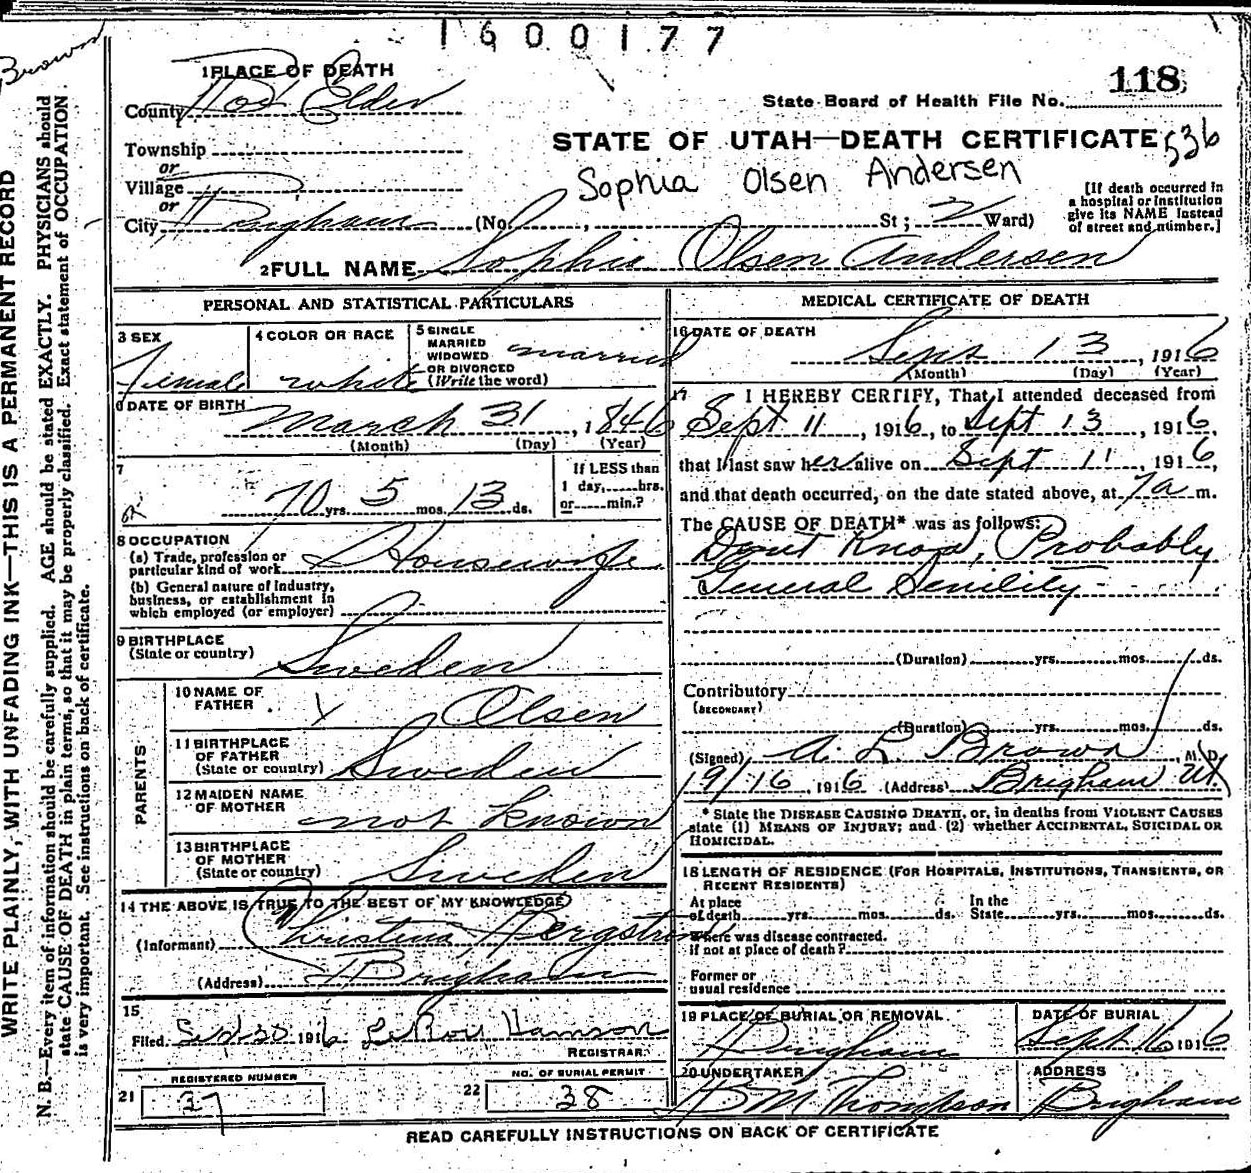 1600177
Brown
118
State Board of Health File No.
STATE OF UTAH—DEATH CERTIFICATE 536
Sophia Olsen Andersen
1 PLACE OF DEATH
County Box Elder
Township
or
Village
or
City Brigham (No. , St; 2 Ward)
[If death occurred in
a hospital or institution
give its NAME instead
of street and number.]
2 FULL NAME Sophia Olsen Andersen
PERSONAL AND STATISTICAL PARTICULARS
3 SEX
Female
4 COLOR OR RACE
white
5 SINGLE
MARRIED
WIDOWED
OR DIVORCED
(Write the word)
married
6 DATE OF BIRTH
March 31, 1846
(Month) (Day) (Year)
7
70 yrs. 5 mos. 13 ds.
If LESS than
1 day, hrs.
or min.?
8 OCCUPATION
(a) Trade, profession or
particular kind of work Housewife
(b) General nature of industry,
business, or establishment in
which employed (or employer)
9 BIRTHPLACE
(State or country)
Sweden
PARENTS
10 NAME OF
FATHER
Olsen
11 BIRTHPLACE
OF FATHER
(State or country)
Sweden
12 MAIDEN NAME
OF MOTHER
not known
13 BIRTHPLACE
OF MOTHER
(State or country)
Sweden
14 THE ABOVE IS TRUE TO THE BEST OF MY KNOWLEDGE
(Informant) Christina Bergstrom
(Address) Brigham
15
Filed 1916 LeRoy Hamson
REGISTRAR
21 REGISTERED NUMBER
27
22 NO. OF BURIAL PERMIT
38
MEDICAL CERTIFICATE OF DEATH
16 DATE OF DEATH
Sept 13, 1916
(Month) (Day) (Year)
17 I HEREBY CERTIFY, That I attended deceased from
Sept 11, 1916, to Sept 13, 1916,
that I last saw her alive on Sept 11, 1916,
and that death occurred, on the date stated above, at 7 a m.
The CAUSE OF DEATH* was as follows:
Dont Know, Probably
General Senility
(Duration) yrs. mos. ds.
Contributory
(SECONDARY)
(Duration) yrs. mos. ds.
(Signed) A. L. Brown, M. D.
9/16, 1916 (Address) Brigham Ut
* State the DISEASE CAUSING DEATH, or, in deaths from VIOLENT CAUSES
state (1) MEANS OF INJURY; and (2) whether ACCIDENTAL, SUICIDAL OR
HOMICIDAL.
18 LENGTH OF RESIDENCE (FOR HOSPITALS, INSTITUTIONS, TRANSIENTS, OR
RECENT RESIDENTS)
At place
of death yrs. mos. ds.
In the
State yrs. mos. ds.
Where was disease contracted.
if not at place of death?
Former or
usual residence
19 PLACE OF BURIAL OR REMOVAL
Brigham
DATE OF BURIAL
Sept 16 1916
20 UNDERTAKER
B M Thompson
ADDRESS
Brigham
READ CAREFULLY INSTRUCTIONS ON BACK OF CERTIFICATE
WRITE PLAINLY, WITH UNFADING INK—THIS IS A PERMANENT RECORD
N. B.—Every item of information should be carefully supplied. AGE should be stated EXACTLY. PHYSICIANS should
state CAUSE OF DEATH in plain terms, so that it may be properly classified. Exact statement of OCCUPATION
is very important. See instructions on back of certificate.